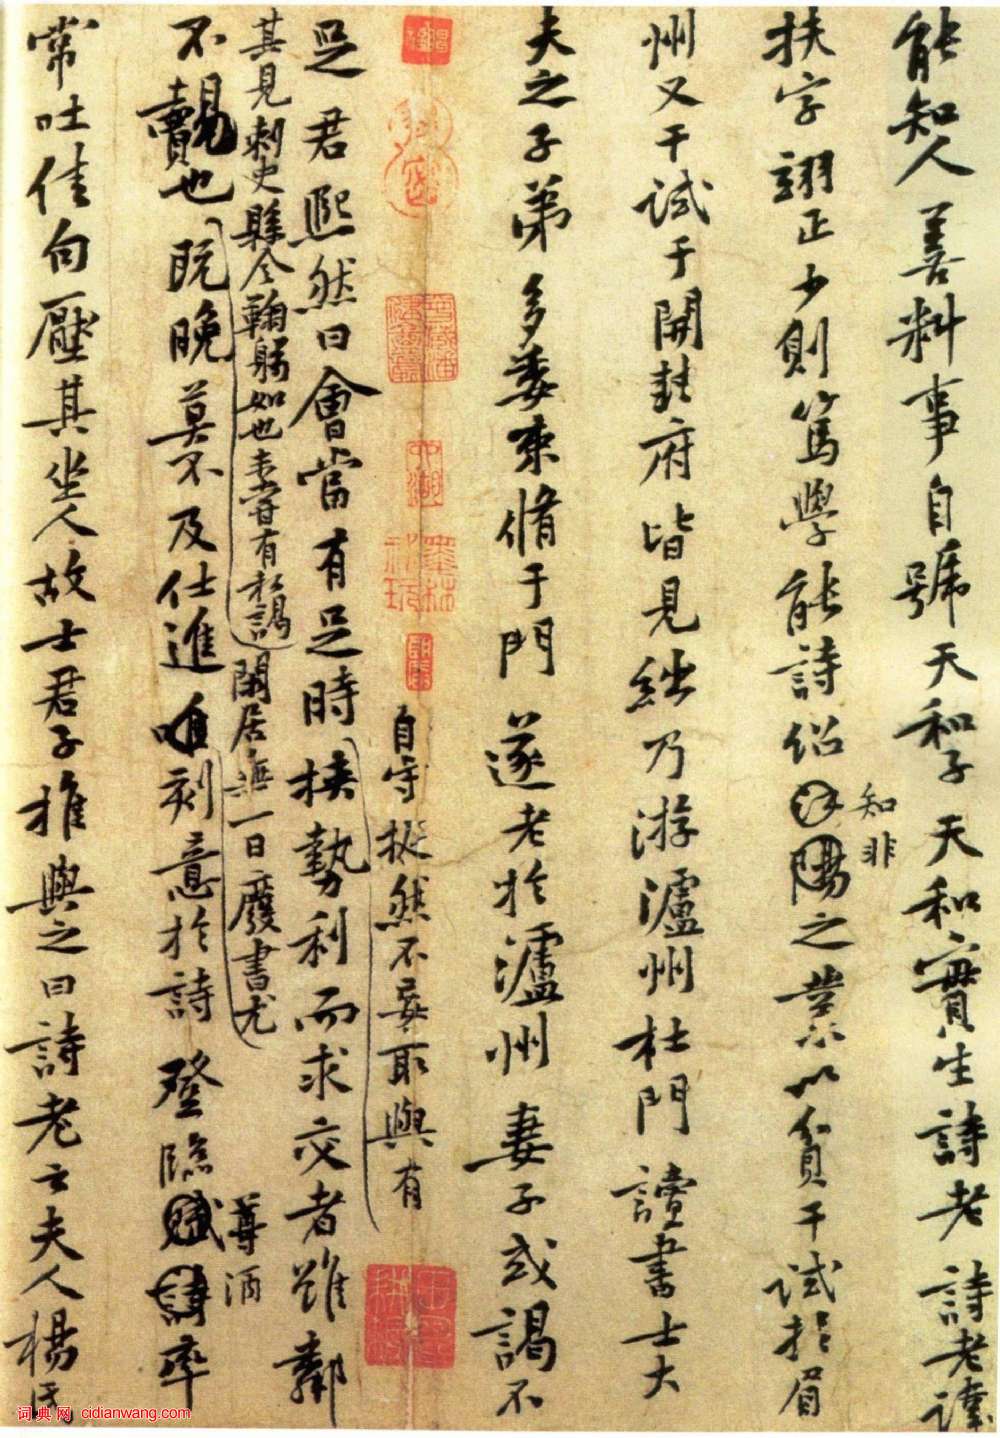 能知人善料事自號天和子天和實生詩老詩老諱
扶字翊正少則篤學能詩紹之業以貧干試於眉
知非
州又干試于開封府皆見絀乃游瀘州杜門讀書士大
夫之子弟多委束脩于門遂老於瀘州妻子或謁不
自守挺然不妄取與有
足君熙然曰會當有足時挾勢利而求交者雖鄰
其見刺史縣令鞠躬如也未嘗有私謁
閑居無一日廢書尤
不覿也既晚莫不及仕進唯刻意於詩登臨賦詩率
尊酒
常吐佳句壓其坐人故士君子推與之曰詩老云夫人楊氏
词典网 cidianwang.com